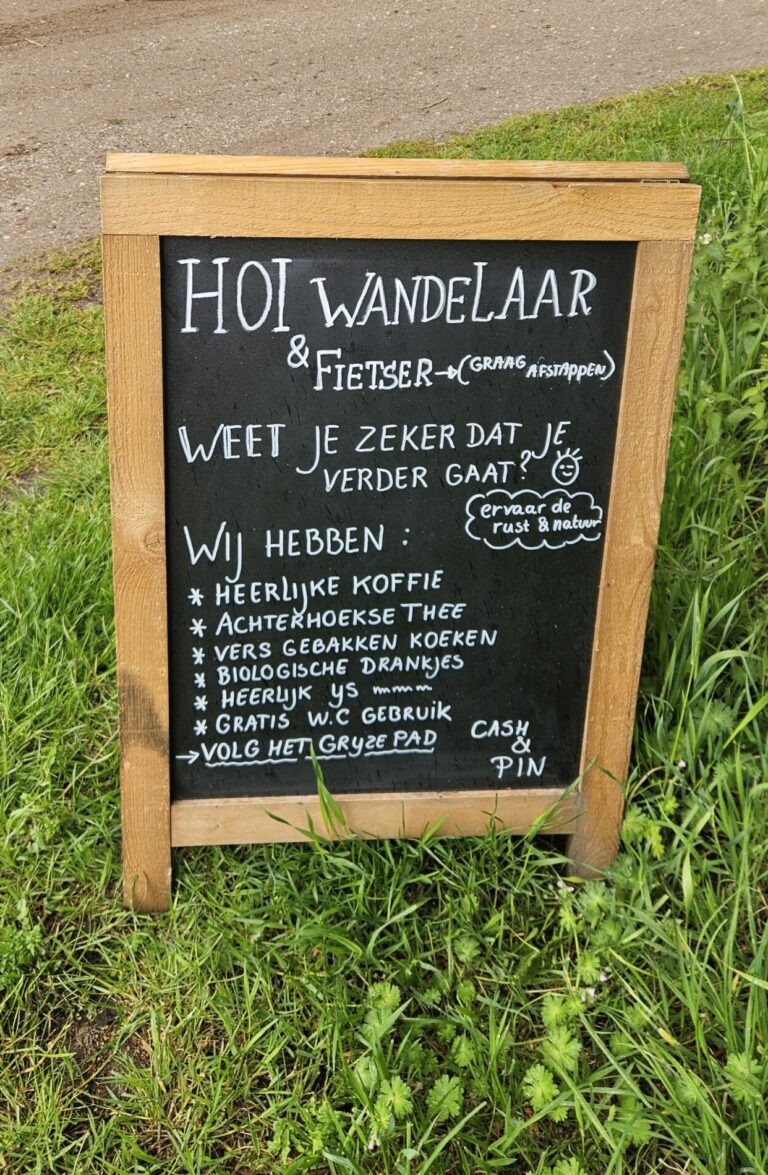 HOI WANDELAAR
& FIETSER → (GRAAG AFSTAPPEN)
WEET JE ZEKER DAT JE
VERDER GAAT?
ervaar de
rust & natuur
WIJ HEBBEN :
* HEERLIJKE KOFFIE
* ACHTERHOEKSE THEE
* VERS GEBAKKEN KOEKEN
* BIOLOGISCHE DRANKJES
* HEERLIJK YS mmm
* GRATIS W.C GEBRUIK
→ VOLG HET GRYZE PAD
CASH
&
PIN